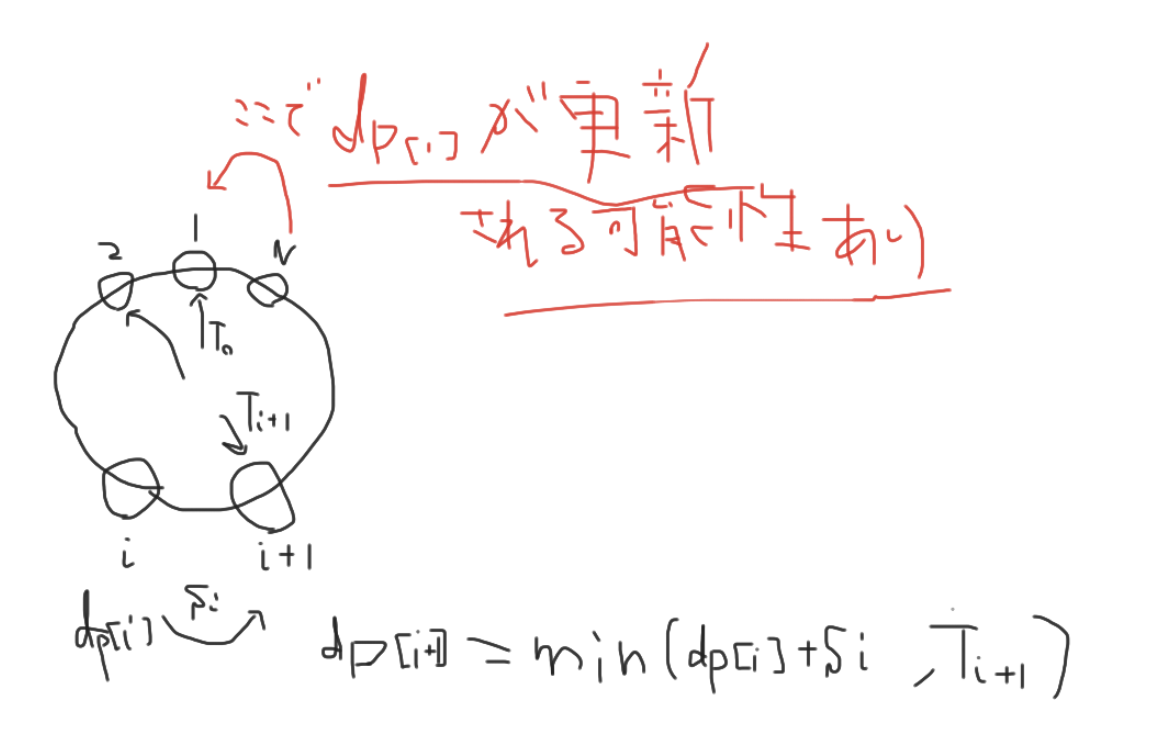 ここで dp[1] が更新
される可能性あり
1
2
N
T₀
Tᵢ₊₁
i
i+1
dp[i]
Sᵢ
dp[i+1] = min(dp[i]+Si , Tᵢ₊₁)